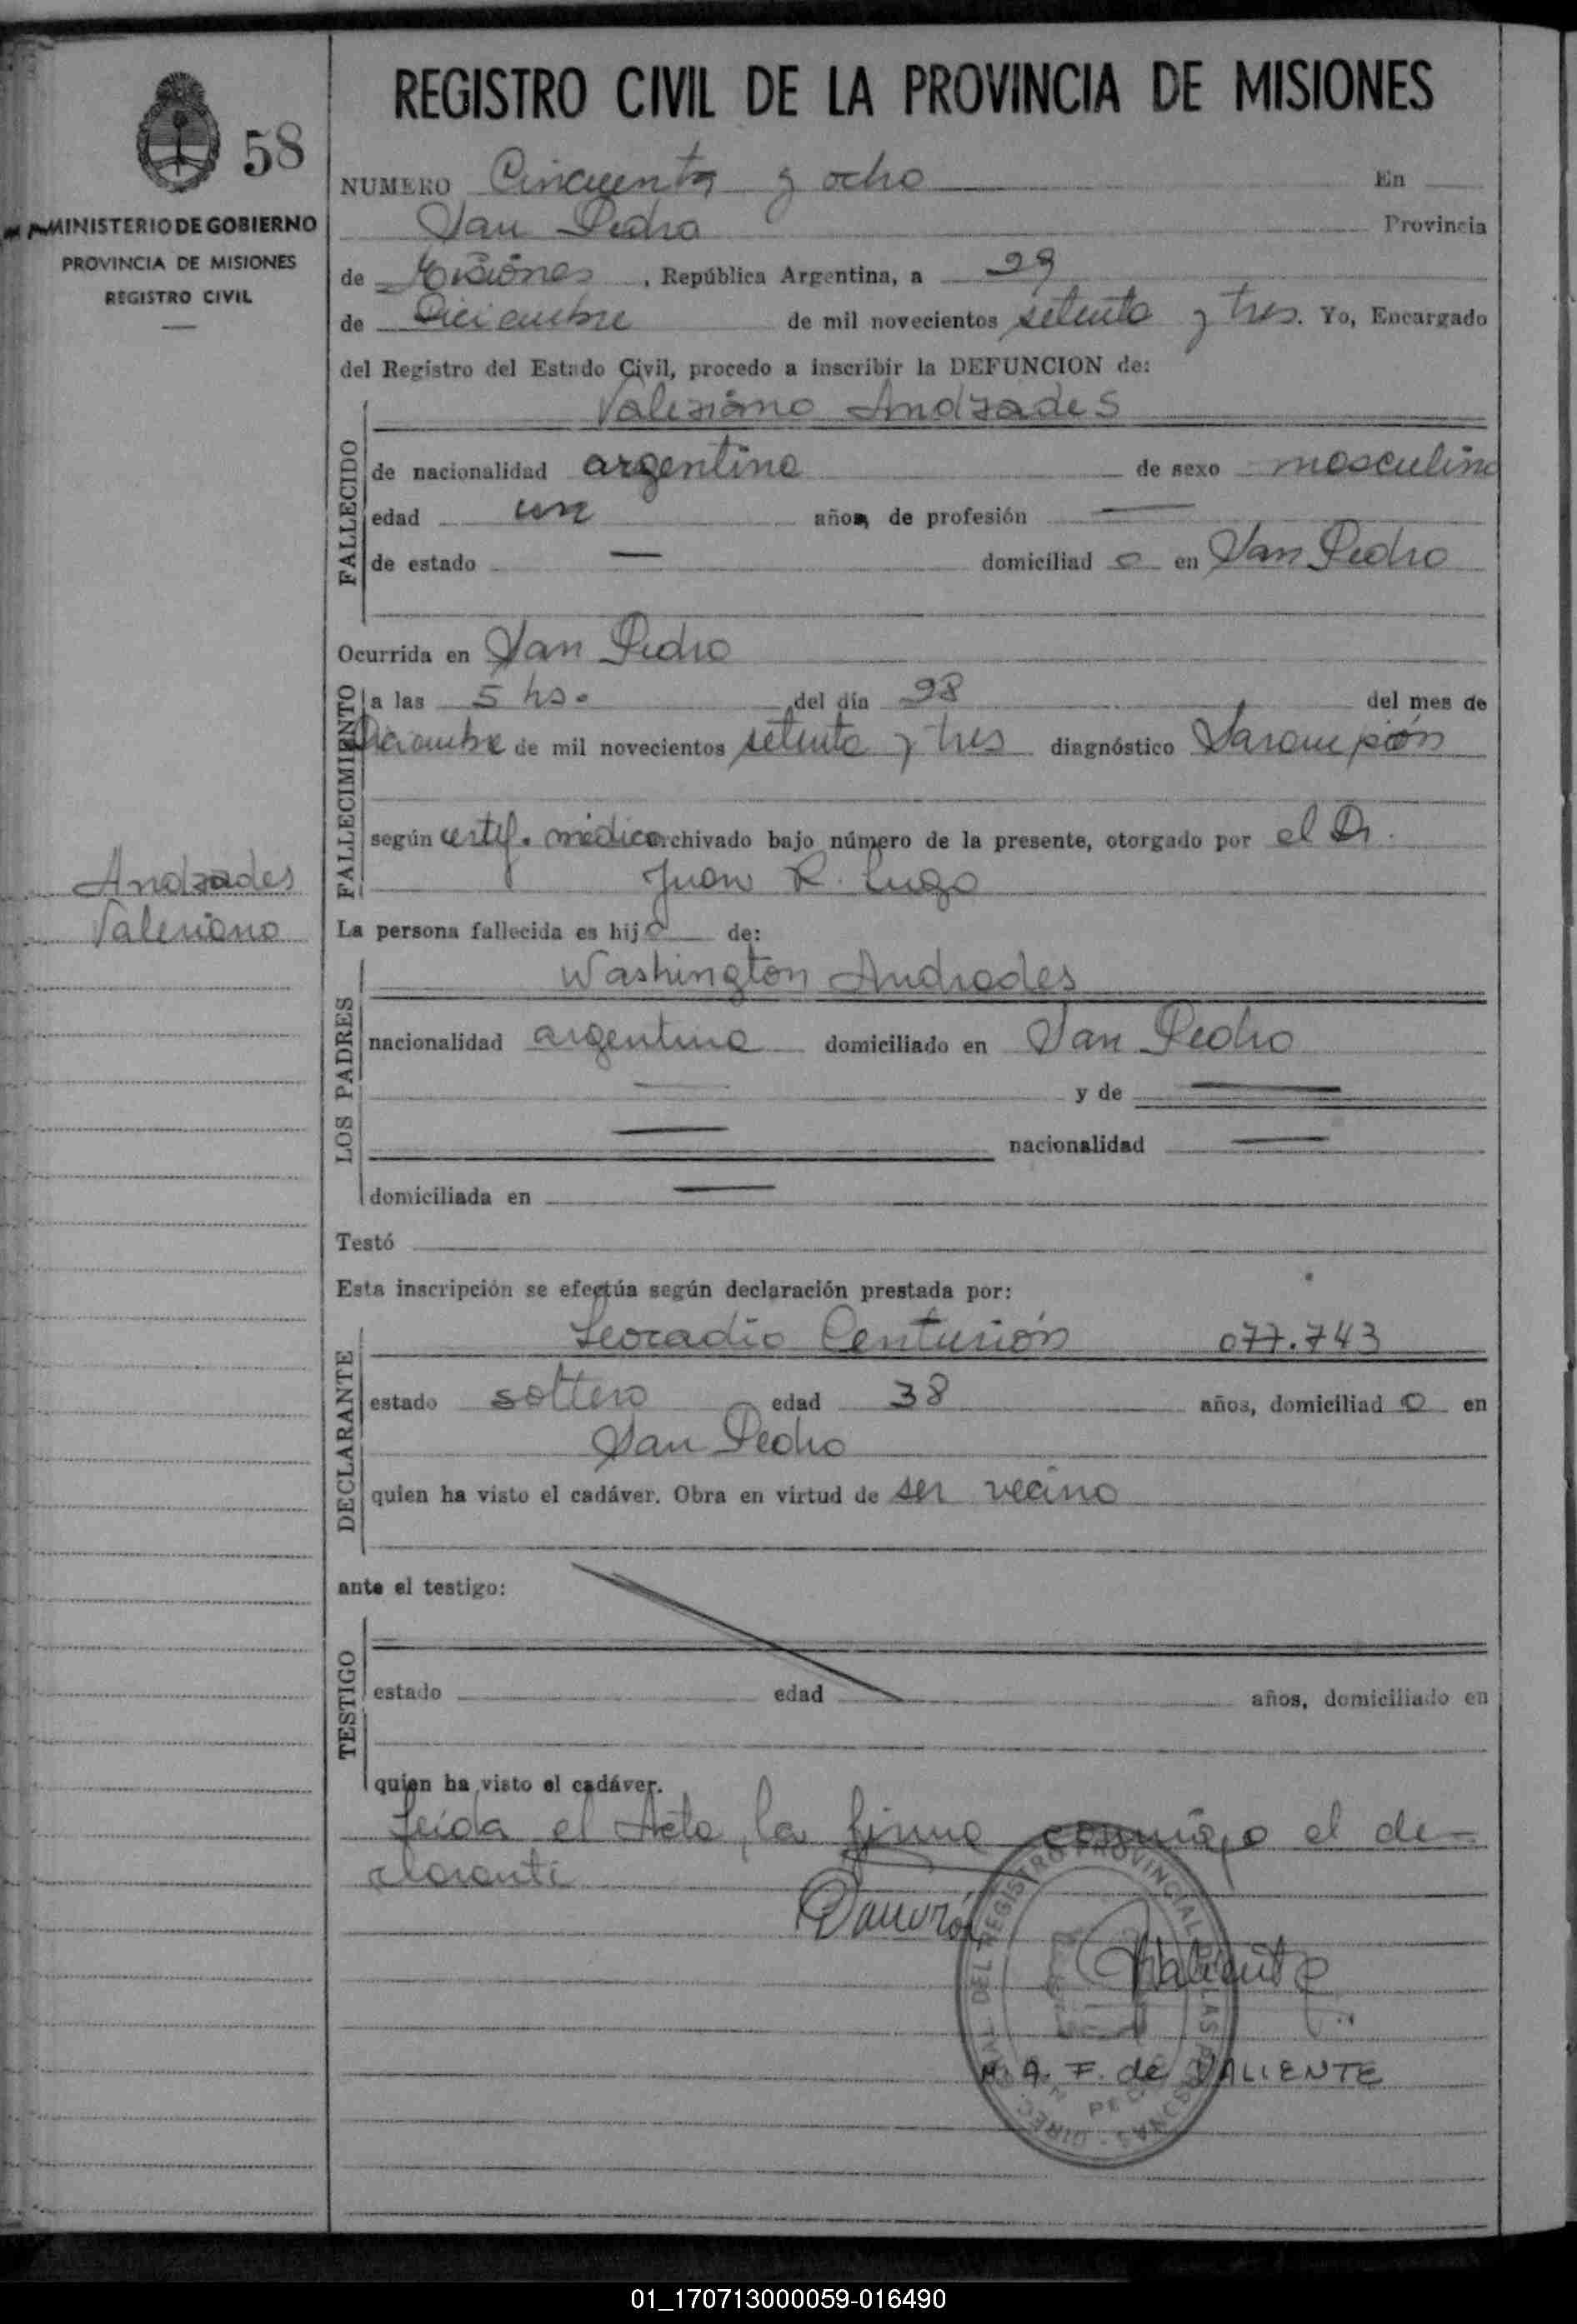 REGISTRO CIVIL DE LA PROVINCIA DE MISIONES
58
MINISTERIO DE GOBIERNO
PROVINCIA DE MISIONES
REGISTRO CIVIL
NUMERO Cincuenta y ocho En
San Pedro Provincia
de Misiones, República Argentina, a 29
de Diciembre de mil novecientos setenta y tres. Yo, Encargado
del Registro del Estado Civil, procedo a inscribir la DEFUNCION de:
Valeriano Andrades
FALLECIDO
de nacionalidad argentina de sexo masculino
edad un años, de profesión —
de estado — domiciliad o en San Pedro
Ocurrida en San Pedro
FALLECIMIENTO
a las 5 hs. del día 28 del mes de
Diciembre de mil novecientos setenta y tres diagnóstico Sarampión
según certif. médico archivado bajo número de la presente, otorgado por el Dr.
Juan R. Lugo
Andrades
Valeriano
La persona fallecida es hijo de:
Washington Andrades
LOS PADRES
nacionalidad argentina domiciliado en San Pedro
— y de —
— nacionalidad —
domiciliada en —
Testó
Esta inscripción se efectúa según declaración prestada por:
Leocadio Centurión 077.743
DECLARANTE
estado soltero edad 38 años, domiciliad o en
San Pedro
quien ha visto el cadáver. Obra en virtud de ser vecino
ante el testigo:
TESTIGO
estado edad años, domiciliado en
quien ha visto el cadáver.
Leída el Acta, la firma conmigo el de-
clarante
Valiente
M. A. F. de VALIENTE
DEL REGISTRO PROVINCIAL DE LAS PERSONAS - DIREC
01_170713000059-016490